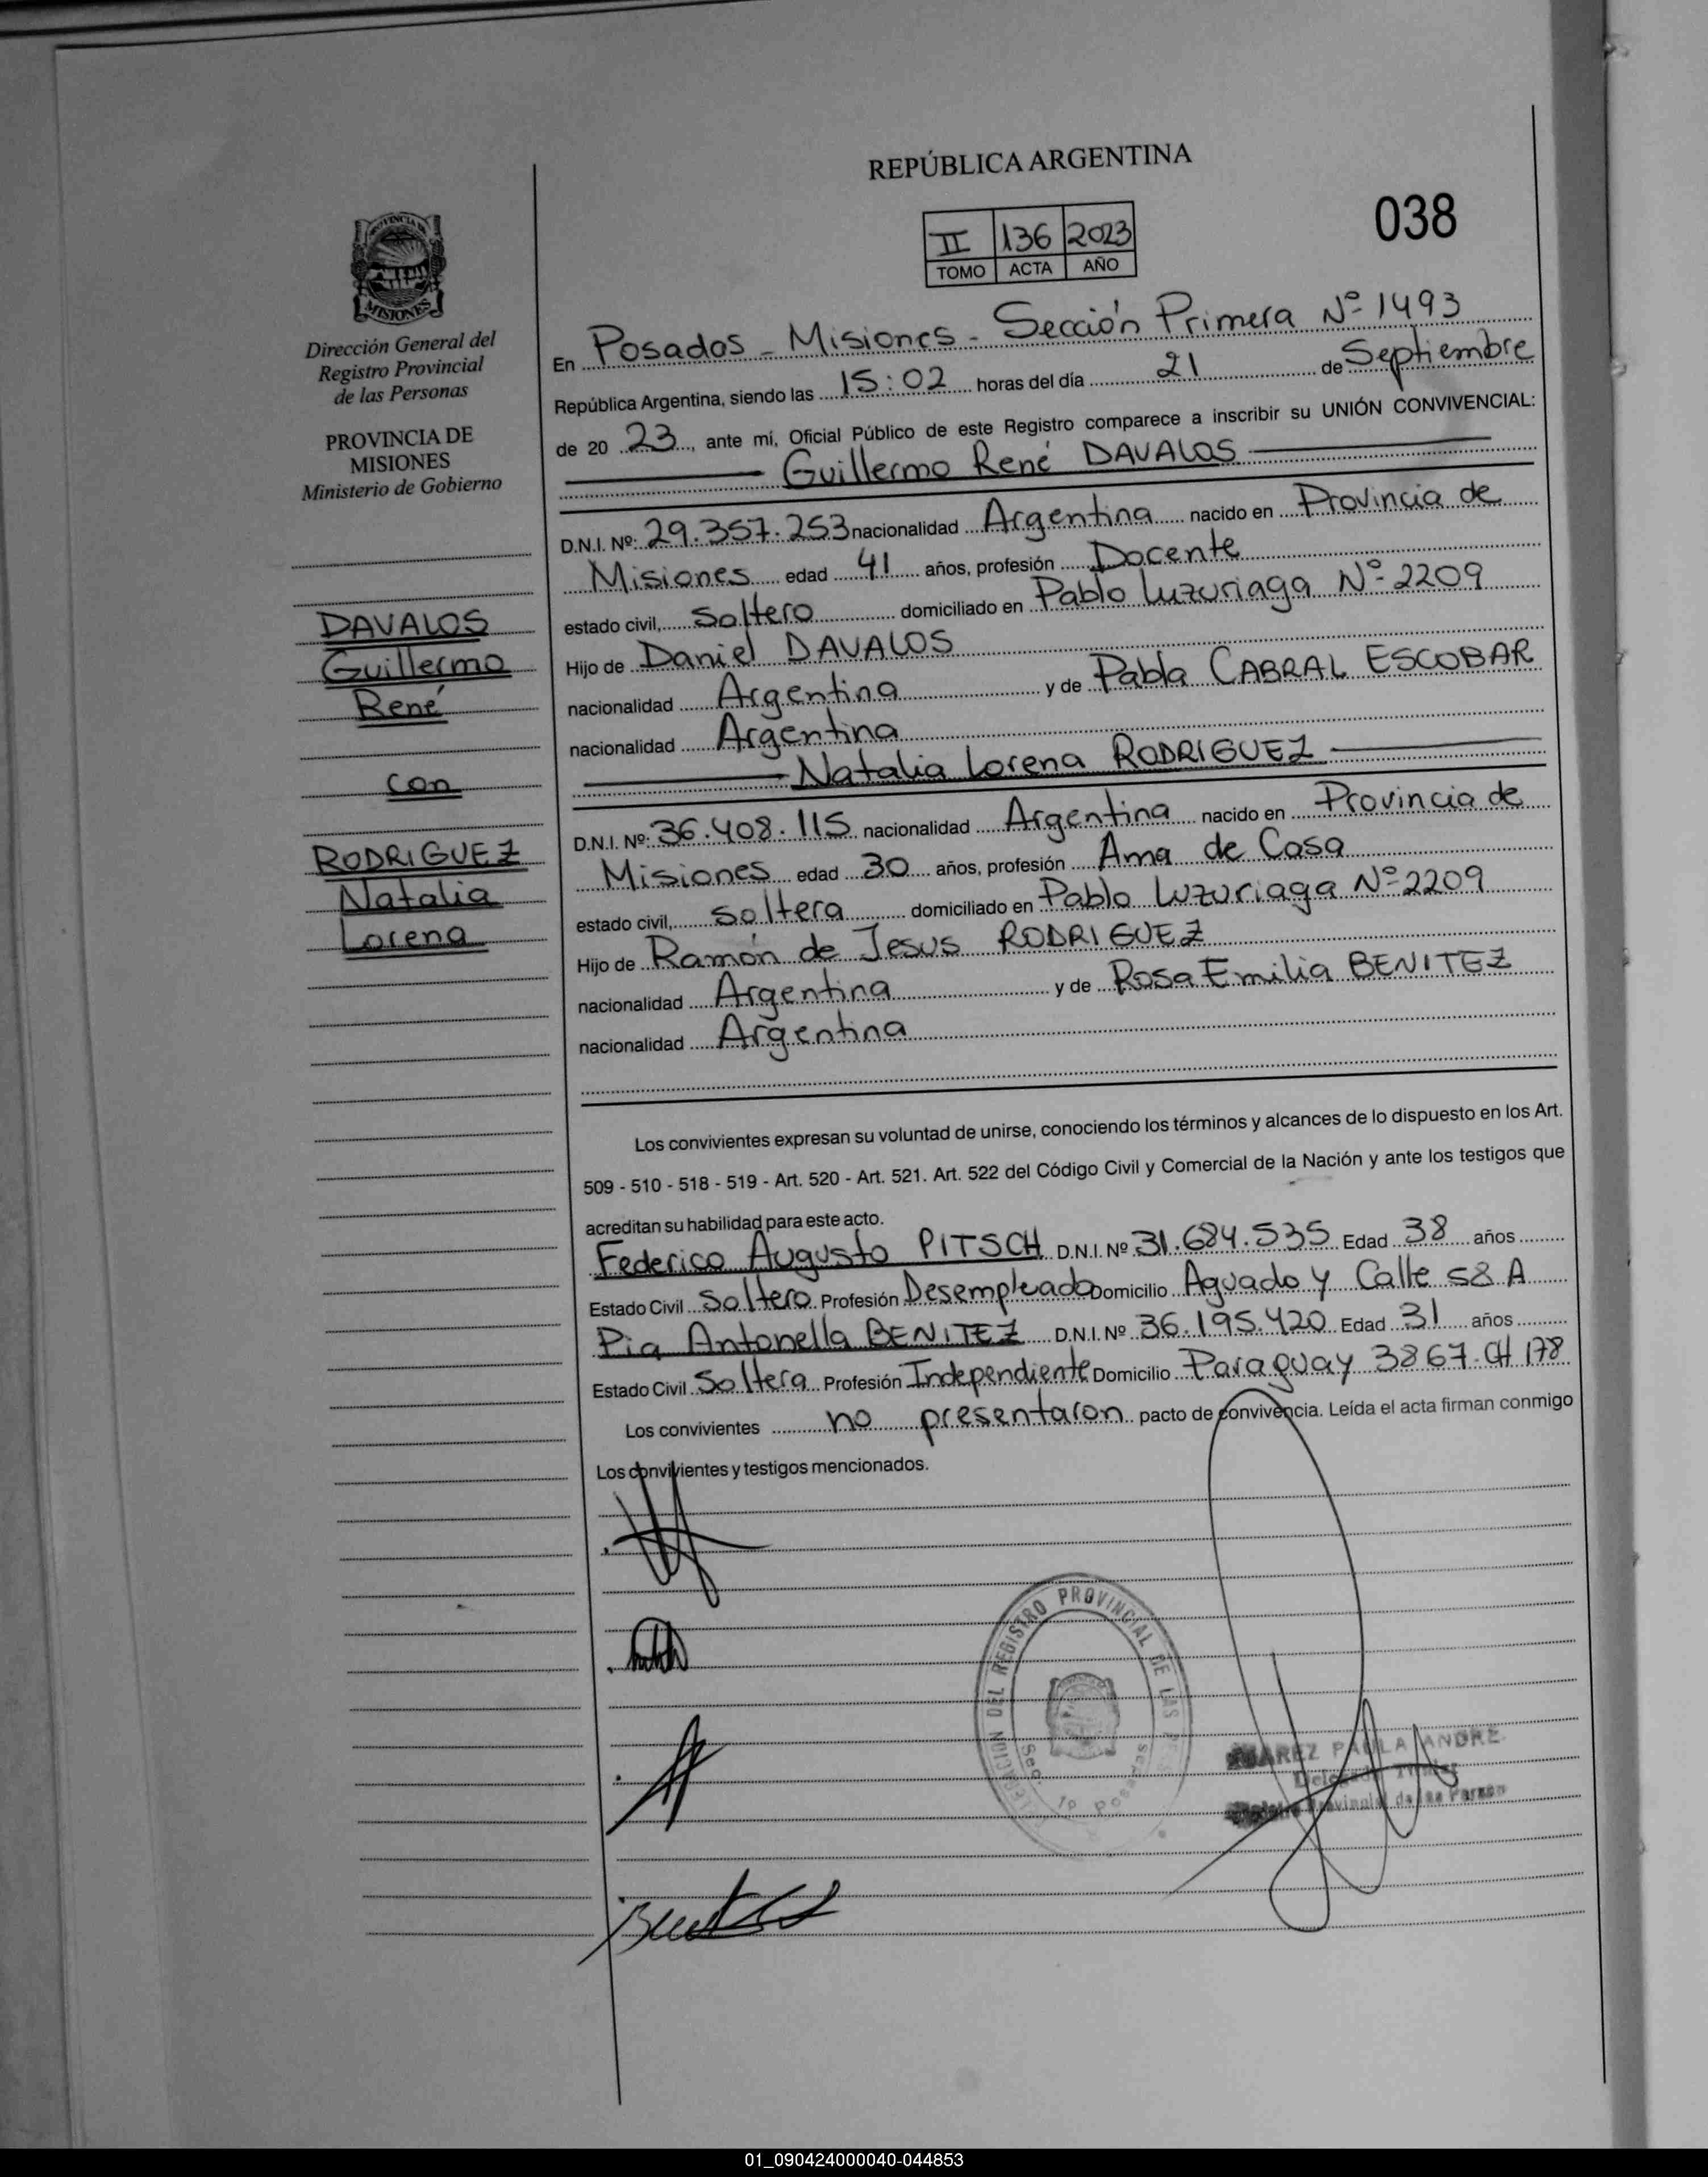 REPÚBLICA ARGENTINA
038
II 136 2023
TOMO ACTA AÑO
PROVINCIA DE
MISIONES
Dirección General del
Registro Provincial
de las Personas
PROVINCIA DE
MISIONES
Ministerio de Gobierno
DAVALOS
Guillermo
René
con
RODRIGUEZ
Natalia
Lorena
En Posadas - Misiones - Sección Primera Nº 1493
República Argentina, siendo las 15:02 horas del día 21 de Septiembre
de 20 23, ante mí, Oficial Público de este Registro comparece a inscribir su UNIÓN CONVIVENCIAL:
Guillermo René DAVALOS
D.N.I. Nº: 29.357.253 nacionalidad Argentina nacido en Provincia de
Misiones edad 41 años, profesión Docente
estado civil, Soltero domiciliado en Pablo Luzuriaga Nº 2209
Hijo de Daniel DAVALOS
nacionalidad Argentina y de Pabla CABRAL ESCOBAR
nacionalidad Argentina
Natalia Lorena RODRIGUEZ
D.N.I. Nº: 36.408.115 nacionalidad Argentina nacido en Provincia de
Misiones edad 30 años, profesión Ama de Casa
estado civil, Soltera domiciliado en Pablo Luzuriaga Nº 2209
Hijo de Ramón de Jesus RODRIGUEZ
nacionalidad Argentina y de Rosa Emilia BENITEZ
nacionalidad Argentina
Los convivientes expresan su voluntad de unirse, conociendo los términos y alcances de lo dispuesto en los Art.
509 - 510 - 518 - 519 - Art. 520 - Art. 521. Art. 522 del Código Civil y Comercial de la Nación y ante los testigos que
acreditan su habilidad para este acto.
Federico Augusto PITSCH D.N.I. Nº 31.684.535 Edad 38 años
Estado Civil Soltero Profesión Desempleado Domicilio Aguado y Calle 58 A
Pia Antonella BENITEZ D.N.I. Nº 36.195.420 Edad 31 años
Estado Civil Soltera Profesión Independiente Domicilio Paraguay 3867. CH 178
Los convivientes no presentaron pacto de convivencia. Leída el acta firman conmigo
Los convivientes y testigos mencionados.
DEL REGISTRO PROVINCIAL DE LAS
Sec. 1ª Posadas
PAOLA ANDRE
Delegada
Provincial de las Person
01_090424000040-044853